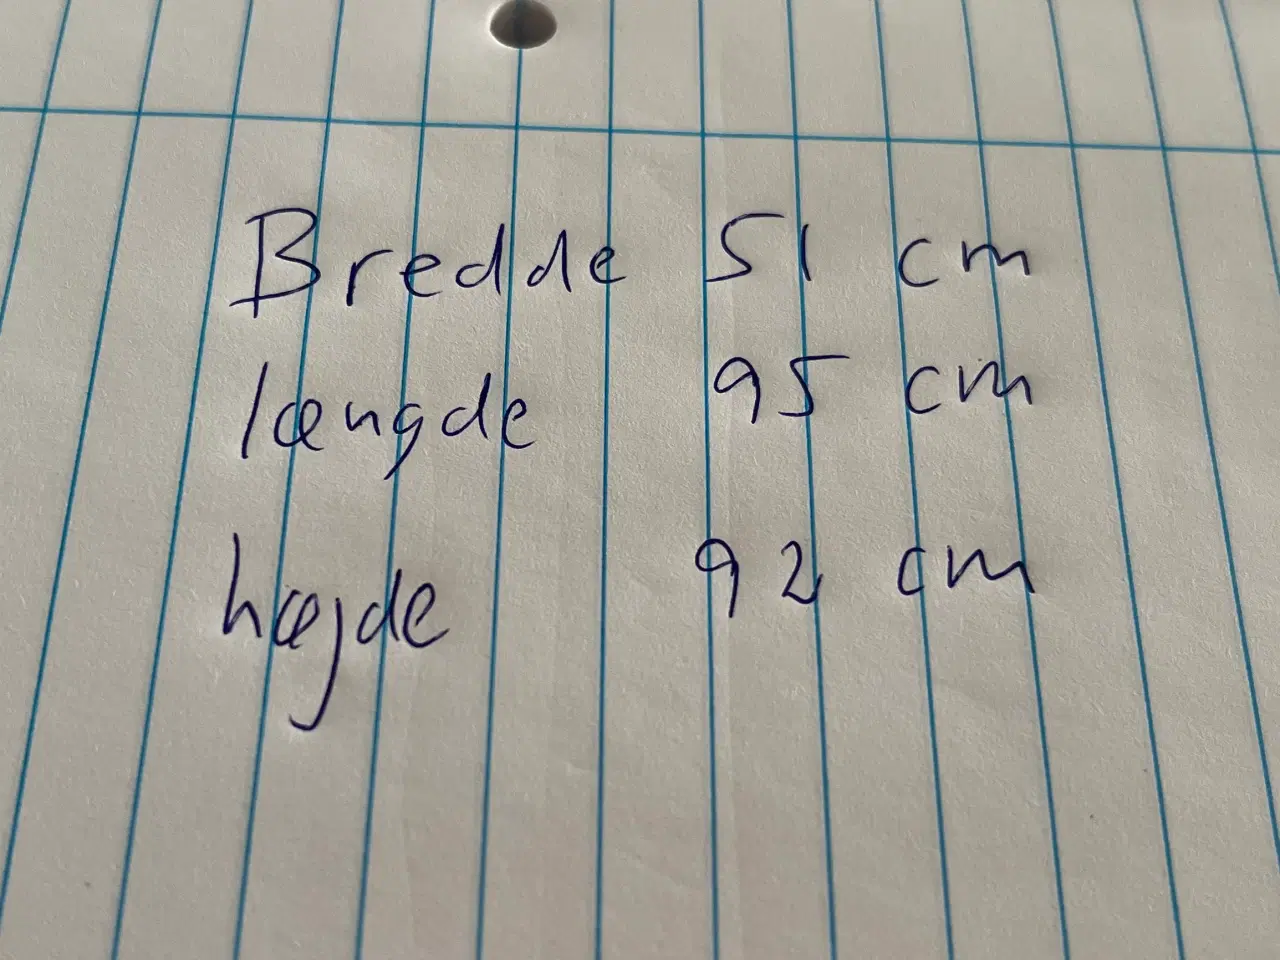 Bredde 51 cm
længde 95 cm
hæjde 92 cm